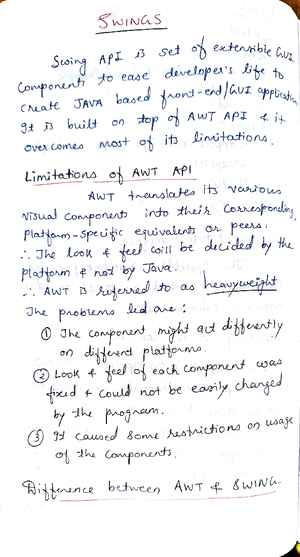 SWINGS
Swing API is set of extensible GUI
Components to ease developer's life to
create JAVA based front-end/GUI application
It is built on top of AWT API & it
overcomes most of its limitations.
Limitations of AWT API
AWT translates its various
visual components into their corresponding
platform-specific equivalents or peers.
∴ The look & feel will be decided by the
platform & not by Java.
∴ AWT is referred to as heavyweight
The problems led are :
① The component might act differently
on different platforms.
② Look & feel of each component was
fixed & could not be easily changed
by the program.
③ It caused some restrictions on usage
of the components.
Difference between AWT & SWING.